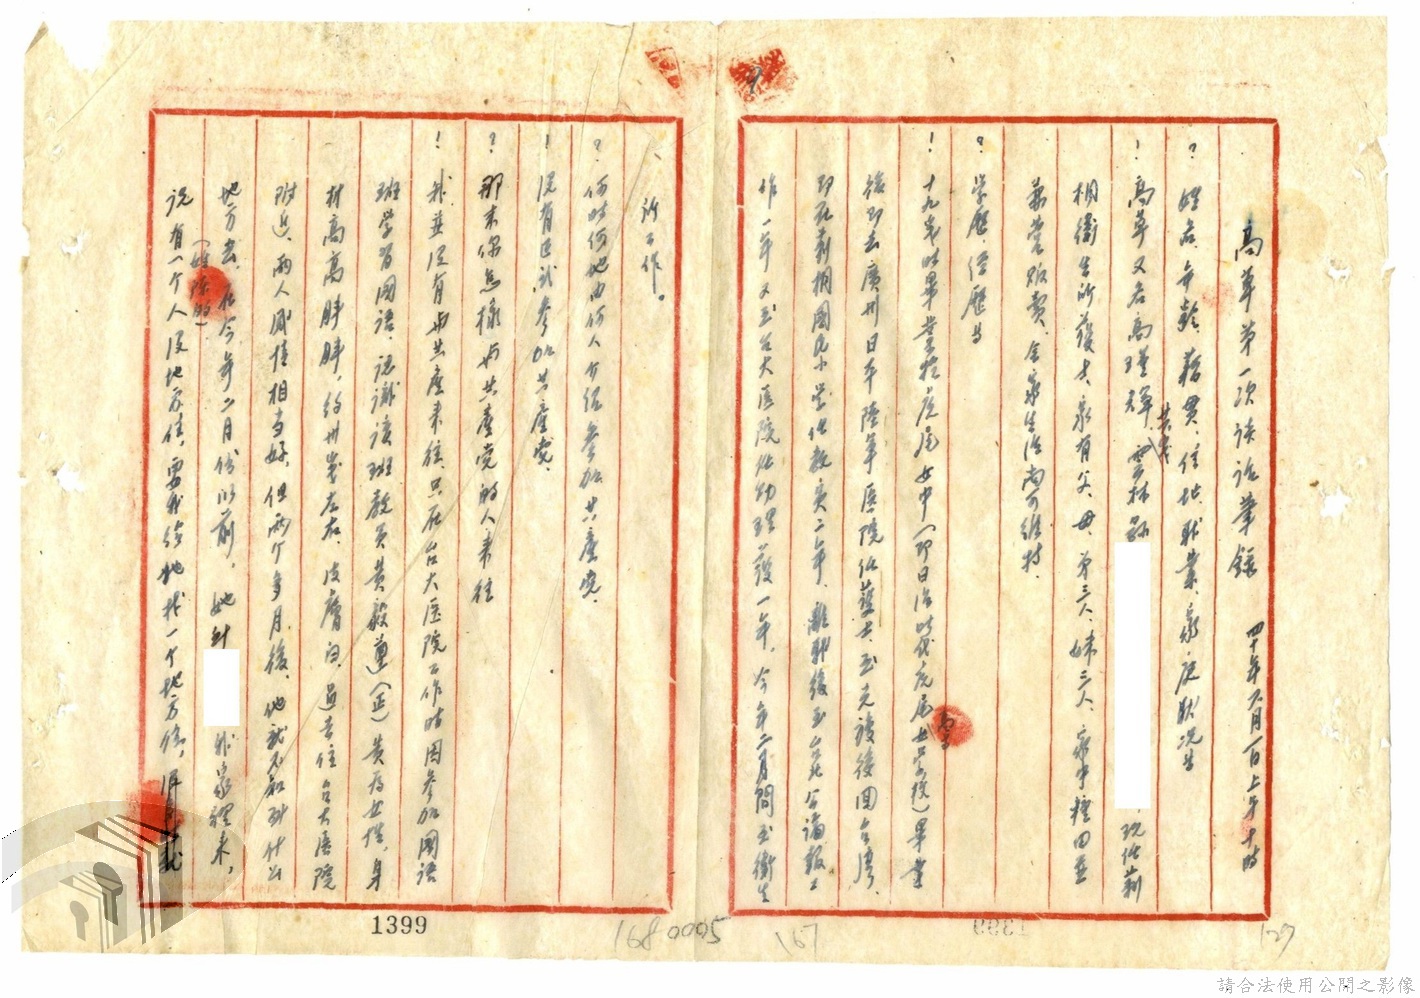 高草第一次談話筆錄 四十年六月一日上午十時
? 姓名年齡籍貫、住址、职業、家庭狀況告
! 高草又名高瑾珠 共 歲 雲林縣 現任莿
桐衛生所護士、家有父、母、弟三人、妹三人、家中種田並
兼營販賣、全家生活尚可維持、
? 学歷、經歷告
! 十九歲时畢業於虎尾女中(即日治时代虎尾女学校)畢業
後即去廣州日本陸軍医院任護士、至光復後回台灣、
即在莿桐國民小学任教員二年、離职後至台北公論報工
作一年又至台大医院任助理護一年、今年二月間至衛生
所工作。
? 何时何地由何人介紹參加共產党、
! 没有正式參加共產党、
? 那末你怎樣与共產党的人来往
! 我並没有与共產来往、只在台大医院工作时因參加國語
班学習國語、認識該班教員黄毅蕫(正)黄為女性、身
材高高胖胖、約卅歲左右、皮膚白、過去住台大医院
附近、兩人感情相当好、但兩个多月後、他就不知到什么
地方去、在今年二月份以前、她到 我家裡来、
(姓陳的)
说有一个人没地方住、要我给她找一个地方住、
1399
168 0005
167
127
請合法使用公開之影像